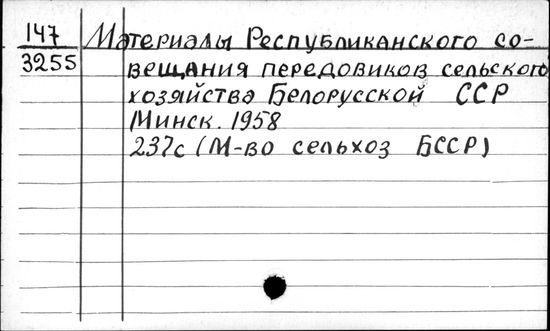 147 Материалы Республиканского со-
3255 вещания передовиков сельского
хозяйства Белорусской ССР
Минск. 1958
237с (М-во сельхоз БССР)